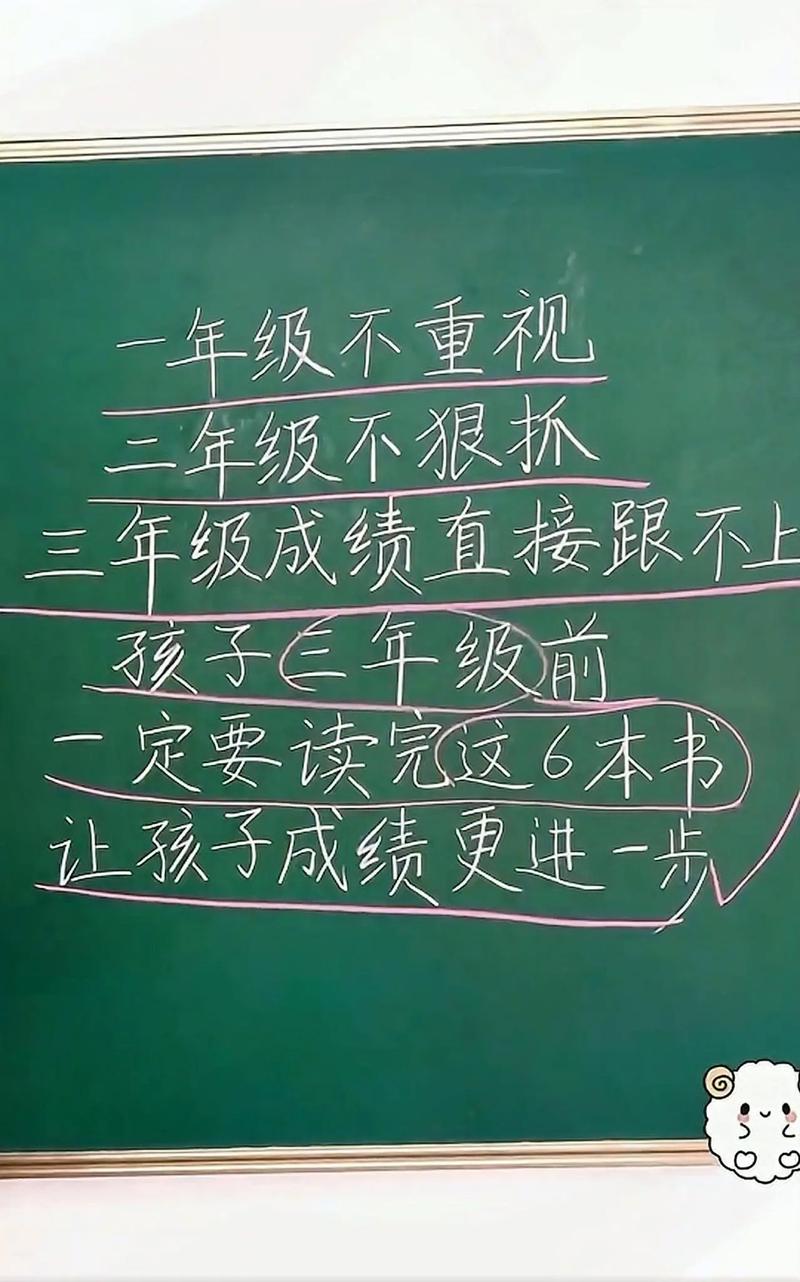 一年级不重视
二年级不狠抓
三年级成绩直接跟不上
孩子三年级前
一定要读完这6本书
让孩子成绩更进一步